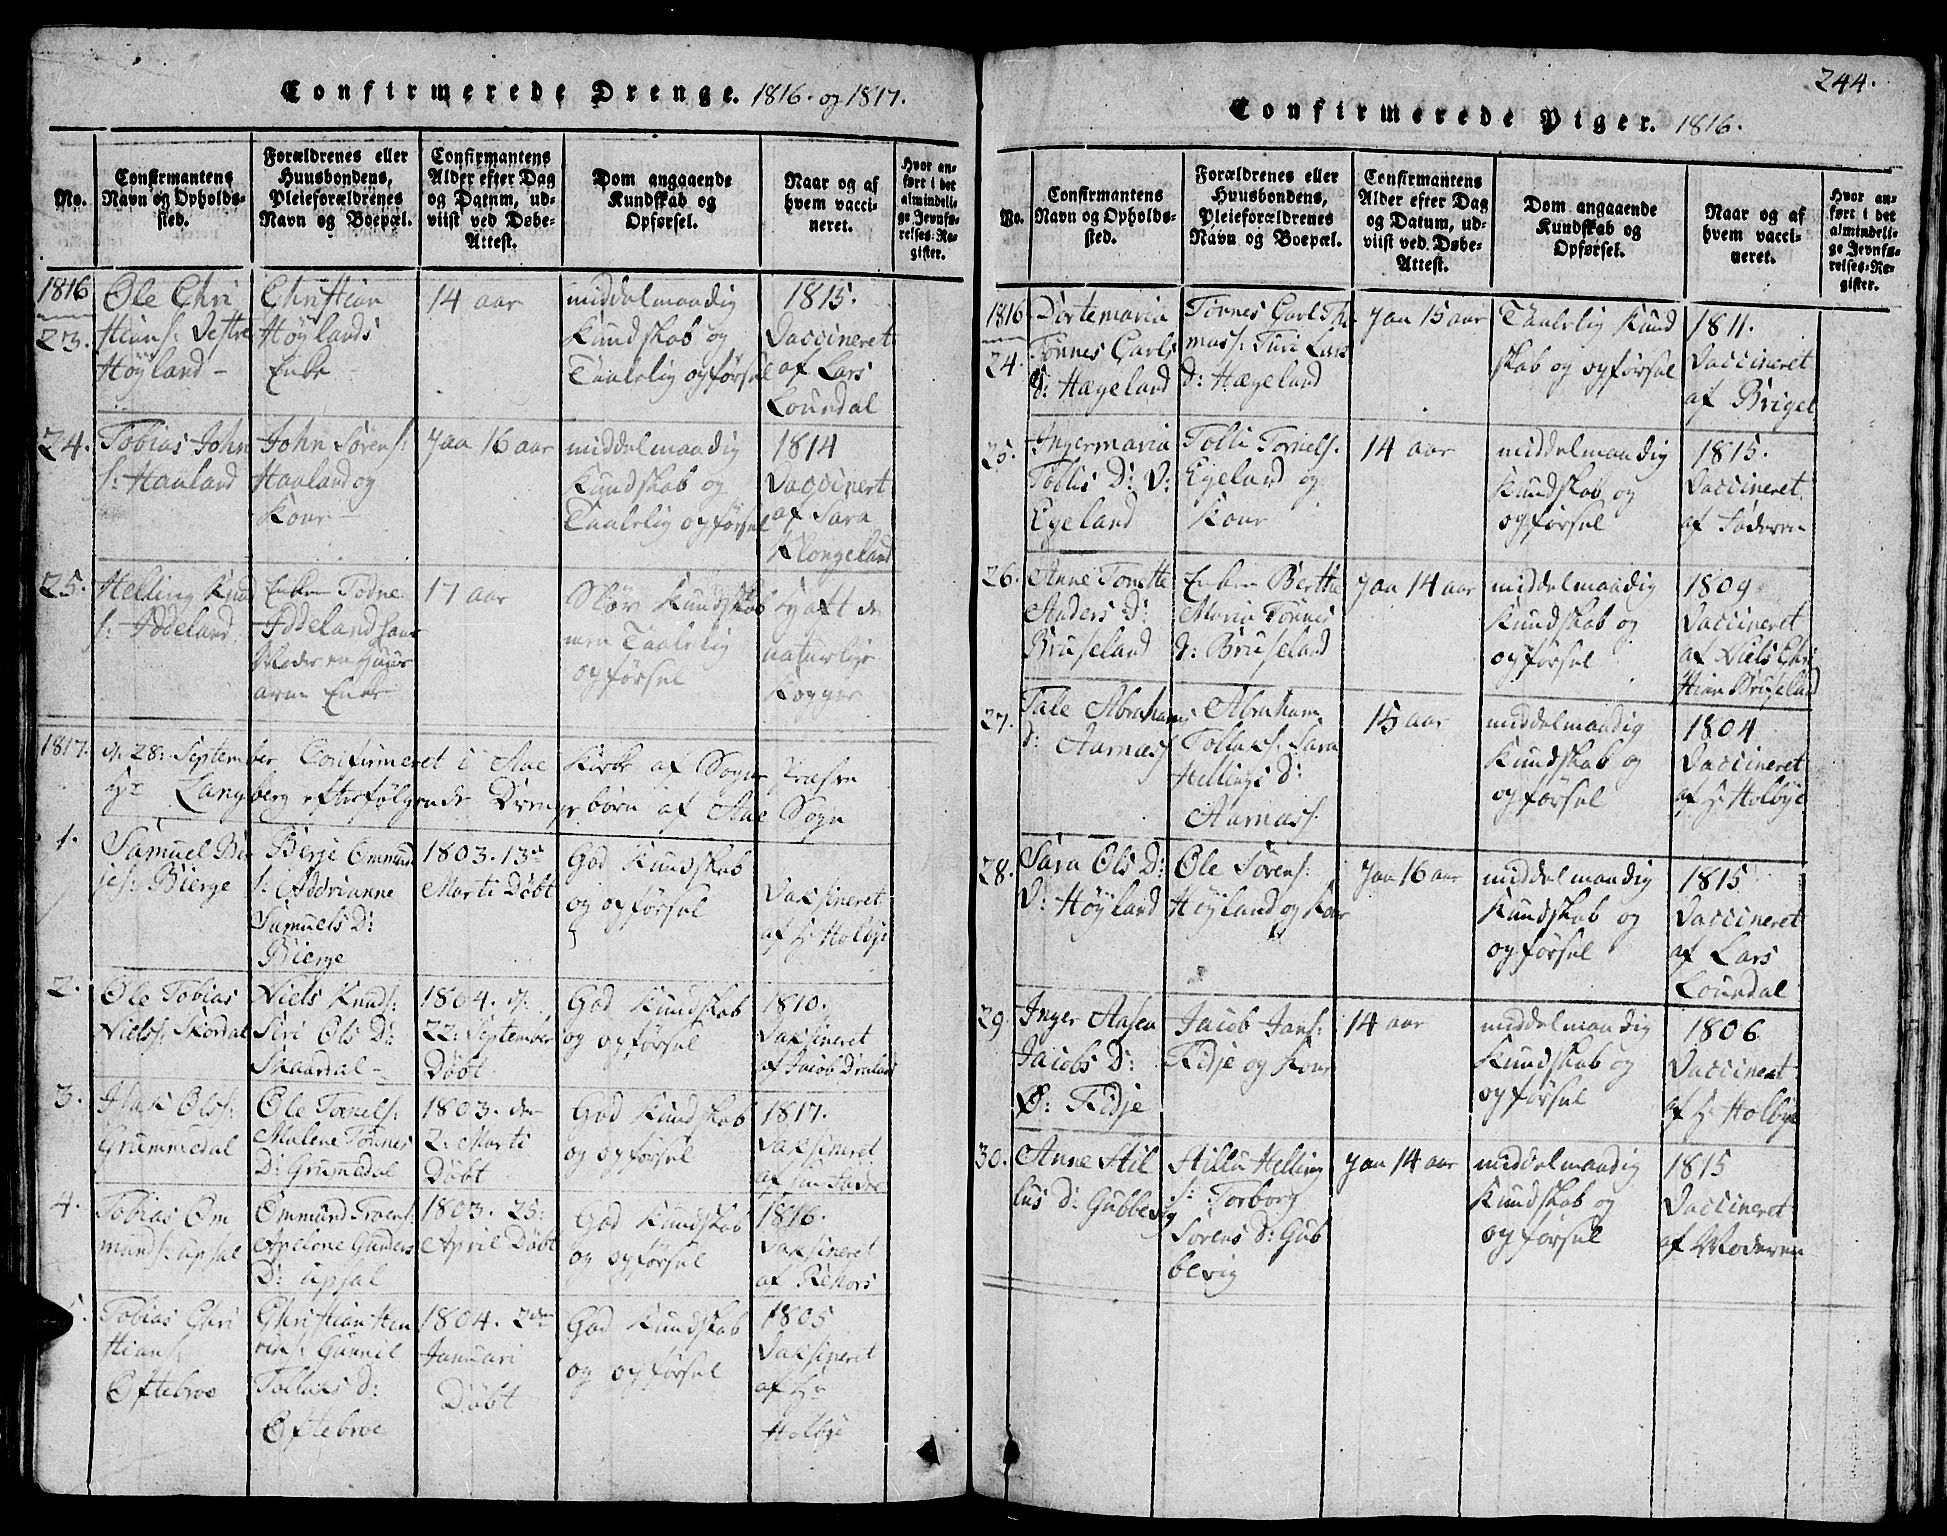 Confirmerede Drenge. 1816. og 1817.
No.
Confirmantens
Navn og Opholds-
sted.
Forældrenes eller
Huusbondens,
Pleieforældrenes
Navn og Boepæl.
Confirmantens
Alder efter Dag
og Datum, ud-
viist ved Døbe-
Attest.
Dom angaaende
Kundskab og
Opførsel.
Naar og af
hvem vacci-
neret.
Hvor an-
ført i det
almindeli-
ge Jevnfø-
relses-Re-
gister.
1816
23.
Ole Chri
stians: Vestre
Høyland -
Christian
Høylands
Enke -
14 aar
middelmaadig
Kundskab og
Taalelig opførsel
1815.
Vaccineret
af Lars
Loundal
24.
Tobias John
s: Haaland
John Sørens:
Haaland og
Kone
Jaa 16 aar
middelmaadig
Kundskab og
Taalelig opførsel
1814
Vaccinert
af Sara
Klongeland
25.
Helling Knud
s: Øddeland
Enken Todne
Øddeland hans
Moder en Huus
arm Enke
17 aar
Sløv Kundskab
men Taalelig
opførsel
haft de
naturlige
Kopper
1817. d. 28: September Confirmeret i Aae Kirke af Sogne Præsten
Hr Langberg efterfølgende Drenge børn af Aae Sogn
1.
Samuel Bir
jes: Bierge
Birje Ommund
s: Addrianne
Samuels D:
Bierge
1803. 13de
Marti Døbt
God Kundskab
og opførsel
Vaksineret
af Hr Holbye
2.
Ole Tobias
Niels: Skordal
Niels Knuds:
Siri Ols D:
Skaardal -
1804. d:
22: September
Døbt
God Kundskab
og opførsel
1810.
Vaksineret
af Jacob
3.
Isak Ols:
Grummedal
Ole Tornels:
Malene Tønnes
D: Grumedal
1803. den
2: Marti
Døbt
God Kundskab
og opførsel
1817.
Vaksineret
af
4.
Tobias Om
munds: Upsal
Ommund Troens:
Apelone Gunders
D: Upsal
1803. 25:
April Døbt
God Kundskab
og opførsel
1816.
Vaksineret
af Rekors
5.
Tobias Chri
stians:
Oftebroe
Christian Hen
rik: Gunnil
Tollaks D:
Oftebroe
1804. 2den
Januari
Døbt
God Kundskab
og opførsel
1805
Vaksineret
af Hr
Holbye
244.
Confirmerede Piger. 1816.
No.
Confirmantens
Navn og Opholds-
sted.
Forældrenes eller
Huusbondens,
Pleieforældrenes
Navn og Boepæl.
Confirmantens
Alder efter Dag
og Datum, ud-
viist ved Døbe-
Attest.
Dom angaaende
Kundskab og
Opførsel.
Naar og af
hvem vacci-
neret.
Hvor an-
ført i det
almindeli-
ge Jevnfø-
relses-Re-
gister.
1816
24.
Dortemaria
Tønnes Garls
D: Hægeland
Tønnes Garl Tho
mas: Turi Lars
D: Hægeland
Jaa 15 aar
Taalelig Kund
skab og opførsel
1811.
Vaccineret
af Briget
25.
Ingermaria
Tollis D: V:
Egeland
Tolli Tornels.
Egeland og
Kone
14 aar
middelmaadig
Kundskab og
opførsel
1815.
Vaccineret
af Faderen
26.
Anne Tonette
Anders D:
Bruseland
Enken Berthe
Maria Tønnes
D: Bruseland
Jaa 14 aar
middelmaadig
Kundskab og
opførsel
1809
Vaccineret
af Niels Chri
stian Bruseland
27.
Tale Abrahams
D: Aamass
Abraham
Tollaks: Sara
Hellings D:
Aamass.
15 aar
middelmaadig
Kundskab og
opførsel
1804
Vaccineret
af Hr Holbye
28.
Sara Ols D:
V: Høyland
Ole Sørens:
Høyland og Kone
Jaa 16 aar
middelmaadig
Kundskab og
opførsel
1815
Vaccineret
af Lars
Loundal
29.
Inger Aasen
Jacobs D:
Ø: Fidje
Jacob Jans:
Fidje og Kone
14 aar
middelmaadig
Kundskab og
opførsel
1806
Vaccineret
af Hr Holbye
30.
Anne Stil
lus D: Gubbevig
Stillu Helling
s: Torborg
Sørens D: Gub
bevig
Jaa 14 aar
middelmaadig
Kundskab og
opførsel
1815
Vaccineret
af Moderen